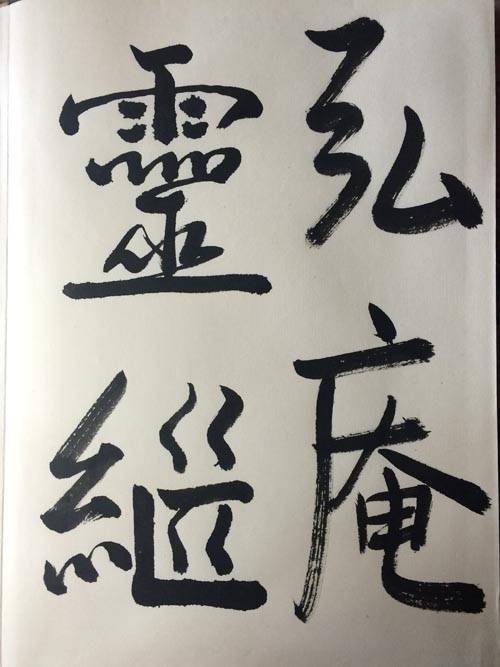 弘庵
靈繼